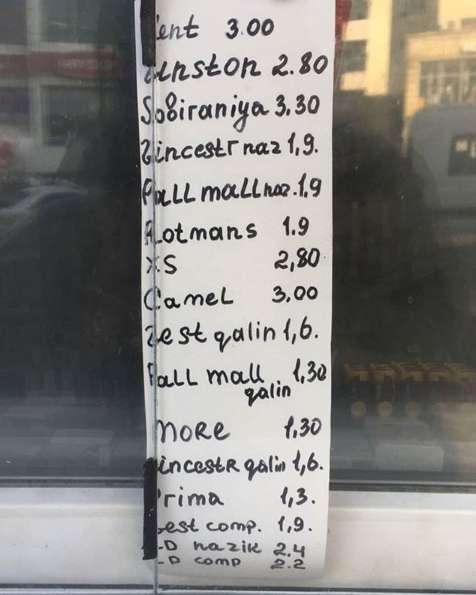 Kent 3.00
Winston 2.80
Sobiraniya 3.30
Vincestr naz 1,9.
Pall mall naz. 1,9
Rotmans 1.9
XS 2,80
Camel 3,00
Vest qalin 1,6.
Pall mall 1,30
qalin
More 1,30
Vincestr qalin 1,6.
Prima 1,3.
Vest comp. 1,9.
LD nazik 2.4
LD comp 2.2